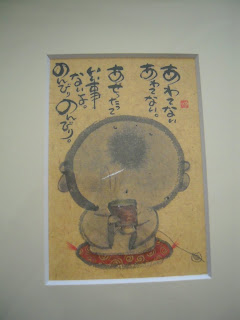 あわてない
あわてない。
あせったって
いい事
ないよ。
のんびりのんびり。